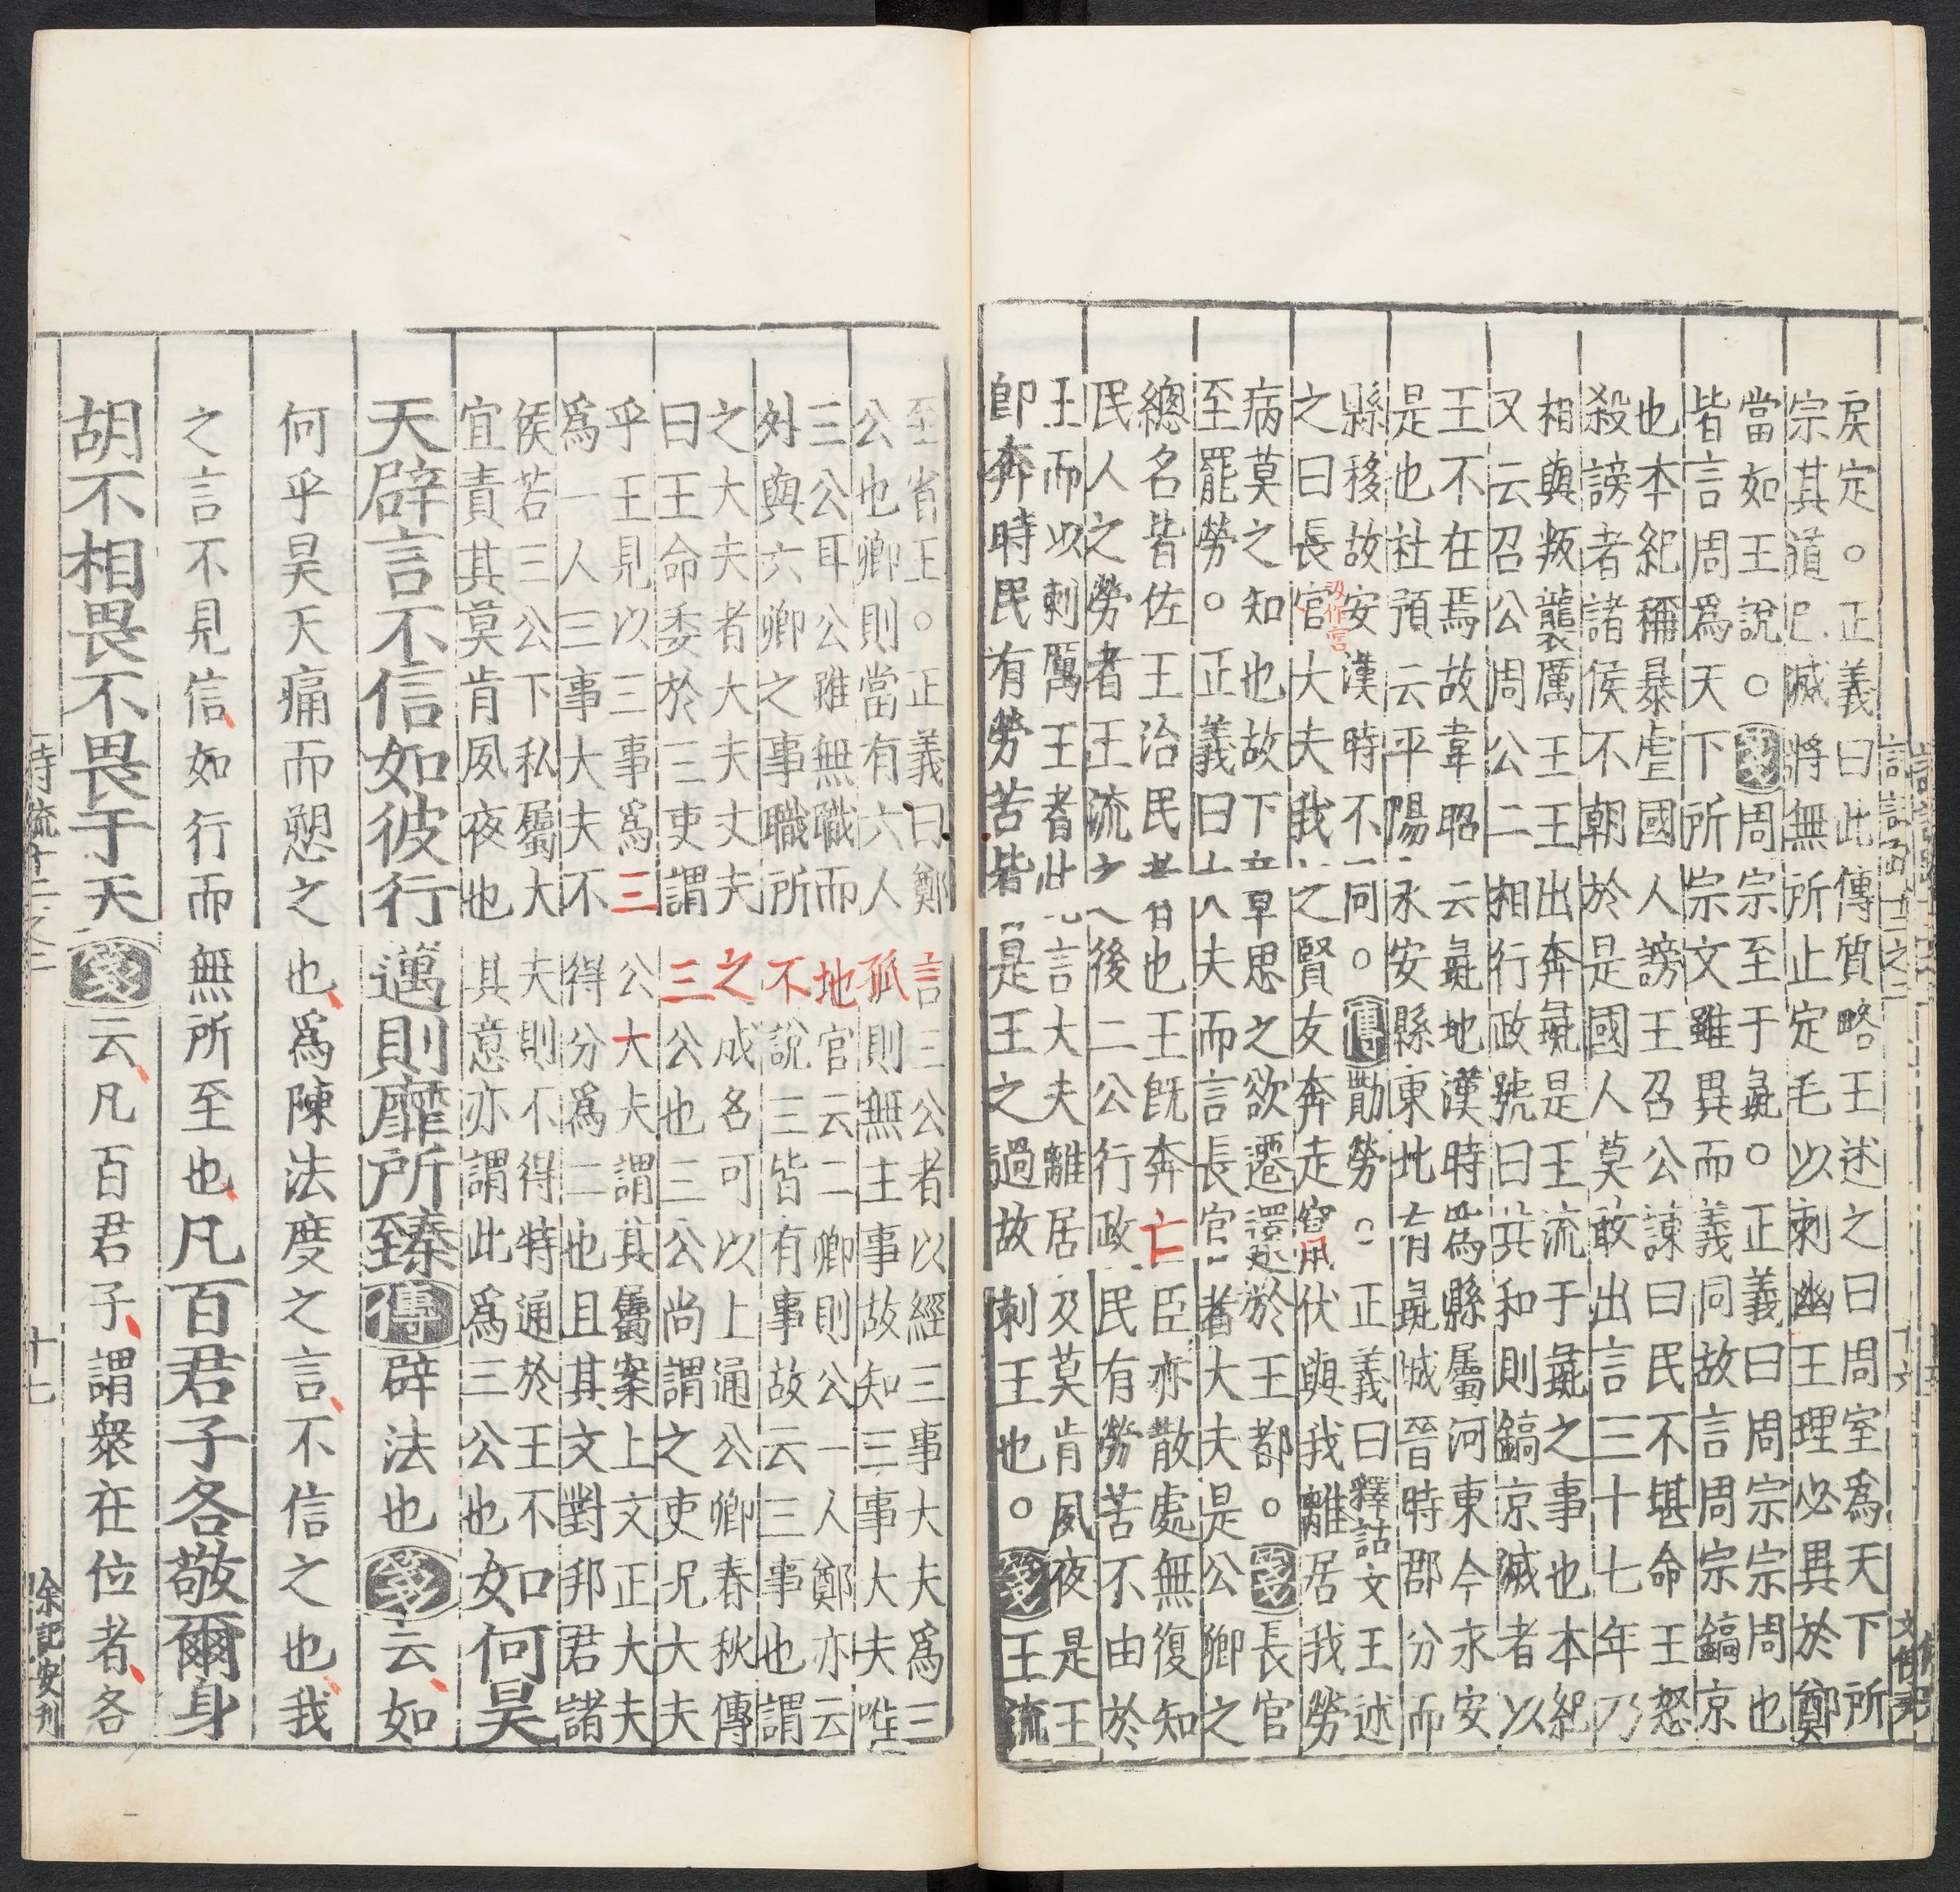 戾定。正義曰此傳質略王述之曰周室爲天下所
宗其道已滅將無所止定毛以刺幽王理必異於鄭
當如王說。箋周宗至于彘。正義曰周宗宗周也
皆言周爲天下所宗文雖異而義同故言周宗鎬京
也本紀稱暴虐國人謗王召公諫曰民不堪命王怒
殺謗者諸侯不朝於是國人莫敢出言三十七年乃
相與叛襲厲王王出奔彘是王流于彘之事也本紀
又云召公周公二相行政號曰共和則鎬京滅者以
王不在焉故韋昭云彘地漢時爲縣屬河東今永安
是也杜預云平陽永安縣東北有彘城晉時郡分而
縣移故安漢時不同。傳勩勞。正義曰釋詁文王述
之曰長官大夫我之賢友奔走竄伏與我離居我勞
病莫之知也故下章思之欲遷還於王都。箋長官
至罷勞。正義曰大夫而言長官者大夫是公卿之
總名皆佐王治民者也王旣奔亡臣亦散處無復知
民人之勞者王流之後二公行政民有勞苦不由於
王而以刺厲王者此言大夫離居及莫肯夙夜是王
卽奔時民有勞苦皆是王之過故刺王也。箋王流
至省王。正義曰鄭言三公者以經三事大夫爲三
公也卿則當有六人孤則無主事故知三事大夫唯
三公耳公雖無職而地官云二卿則公一人鄭亦云
外與六卿之事職所不說三皆有事故云三事也謂
之大夫者大夫丈夫之成名可以上通公卿春秋傳
曰王命委於三吏謂三公也三公尚謂之吏況大夫
乎王見以三事爲三公大夫謂其屬案上文正大夫
爲一人三事大夫不得分爲二也且其文對邦君諸
侯若三公下私屬大夫則不得特通於王不
宜責其莫肯夙夜也其意亦謂此爲三公也
如何昊
天辟言不信如彼行邁則靡所臻傳辟法也箋云如
何乎昊天痛而愬之也爲陳法度之言不信之也我
之言不見信如行而無所至也凡百君子各敬爾身
胡不相畏不畏于天箋云凡百君子謂衆在位者各
詩疏十二之二
十七
余記安刊